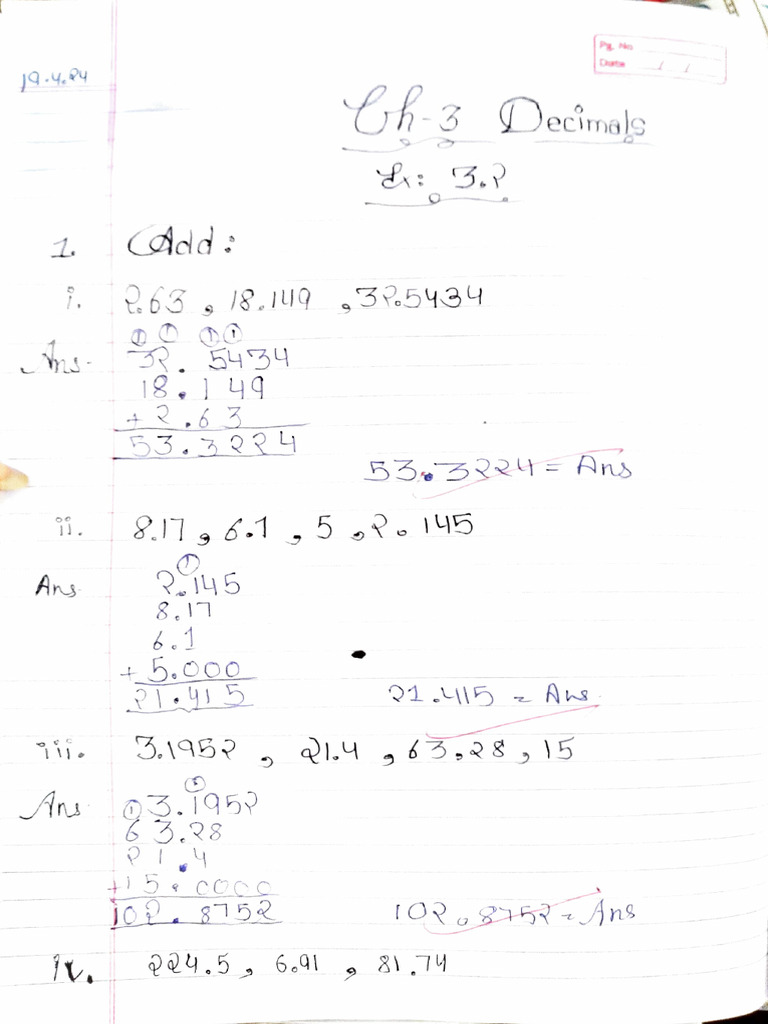 Pg. No
Date / /
19.4.24
Ch-3 Decimals
Ex: 3.2
1. Add:
i. 2.63, 18.149, 32.5434
① ① ① ①
Ans. 32.5434
18.149
+2.63
53.3224
53.3224 = Ans
ii. 8.17, 6.1, 5, 2.145
①
Ans. 2.145
8.17
6.1
+5.000
21.415
21.415 = Ans.
iii. 3.1952, 21.4, 63.28, 15
Ans ① 3.1952
63.28
21.4
+15.0000
102.8752
102.8752 = Ans
iv. 224.5, 6.91, 81.74